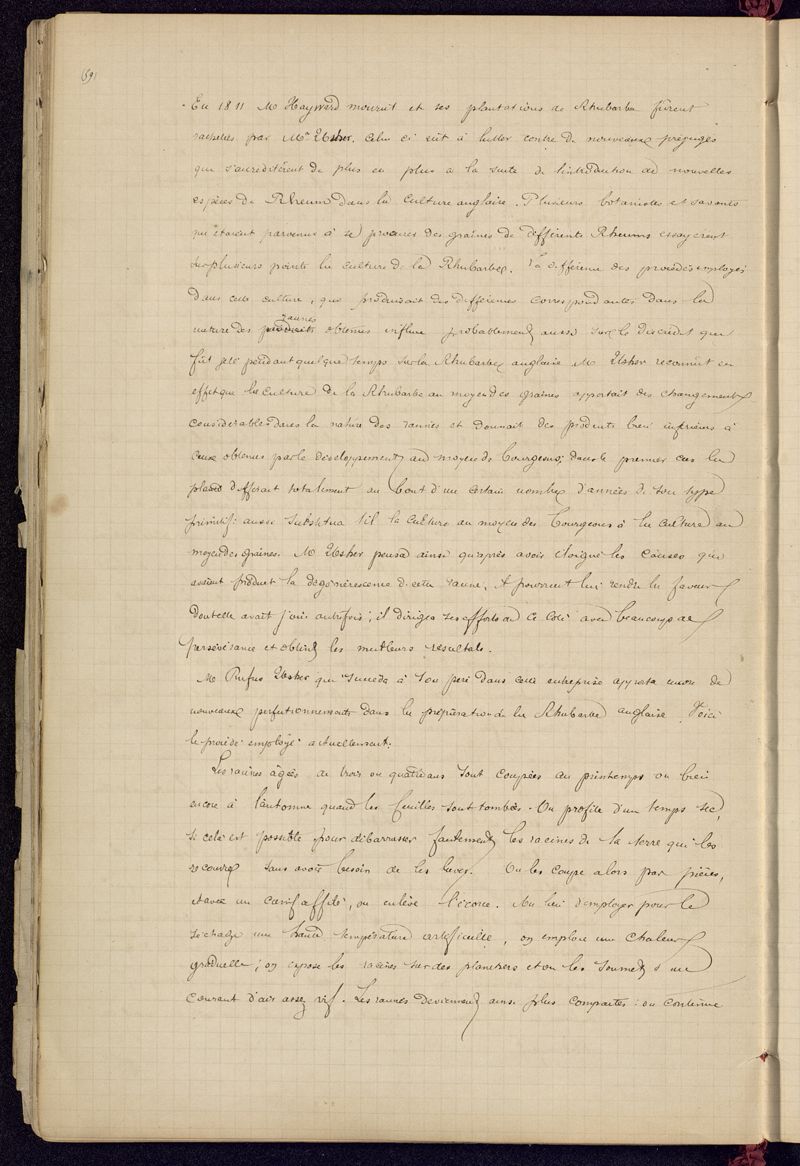 69
En 1811 Mr Hayward mourut et ses plantations de Rhubarbe furent
rachetées par Mr Usher. Celui ci eut à lutter contre de nouveaux préjugés
qui s'accréditèrent de plus en plus à la suite de l'introduction de nouvelles
espèces de Rheum dans la culture anglaise. Plusieurs botanistes et savants
qui étaient parvenus à se procurer des graines de différents Rheums essayèrent
sur plusieurs points la culture de la Rhubarbe. La différence des procédés employés
dans cette culture, qui produisait des différences correspondantes dans la
racines
nature des produits obtenus influa probablement aussi sur le discrédit qui
fut jeté pendant quelque temps sur la Rhubarbe anglaise. Mr Usher reconnut en
effet que la culture de la Rhubarbe au moyen des graines apportait des changements
considérables dans la nature des racines et donnait des produits bien inférieurs à
ceux obtenus par le développement au moyen de bourgeons; dans le premier cas la
plante différait totalement au bout d'un certain nombre d'années de son type
primitif: aussi substitua t'il la culture au moyen des bourgeons à la culture au
moyen des graines. Mr Usher pensa ainsi qu'après avoir éloigné les causes qui
avaient produit la dégénérescence de cette racine, il pourrait lui rendre la faveur
dont elle avait joui autrefois; il dirigea ses efforts de ce coté avec beaucoup de
persévérance et obtint les meilleurs résultats.
Mr Rufus Usher qui succéda à son père dans cette entreprise apporta encore de
nouveaux perfectionnements dans la préparation de la Rhubarbe anglaise. Voici
le procédé employé actuellement.
Les racines âgées de trois ou quatre ans sont coupées au printemps ou bien
encore à l'automne quand les feuilles sont tombées. On profite d'un temps sec,
si cela est possible pour débarrasser facilement les racines de la terre qui les
recouvre sans avoir besoin de les laver. On les coupe alors par pièces,
et avec un canif affilé, on enlève l'écorce. Au lieu d'employer pour le
séchage une haute température artificielle, on emploie une chaleur
graduelle; on expose les racines sur des planchers et on les soumet à un
courant d'air assez vif. Les racines deviennent ainsi plus compactes: on continue